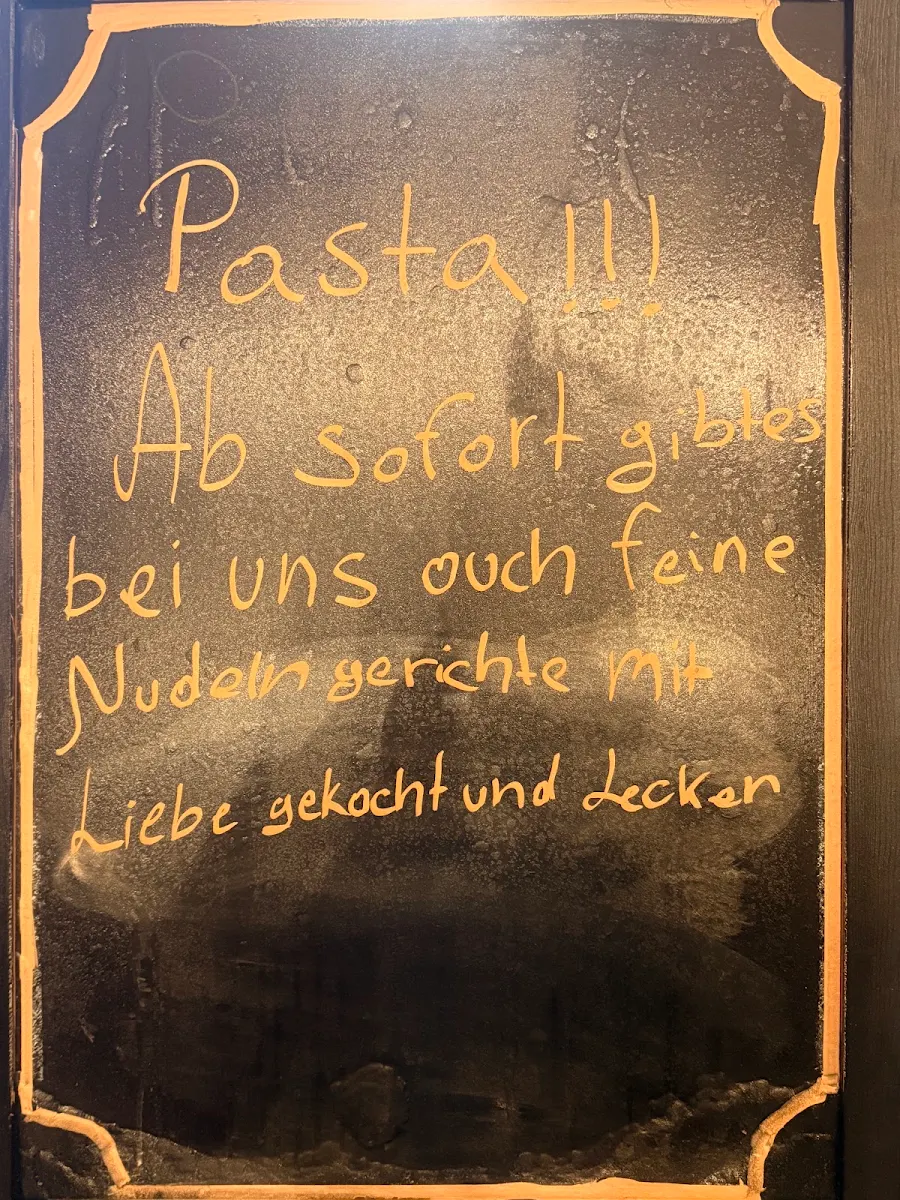 Pasta!!!
Ab sofort gibtes
bei uns auch feine
Nudeln gerichte mit
Liebe gekocht und Lecken